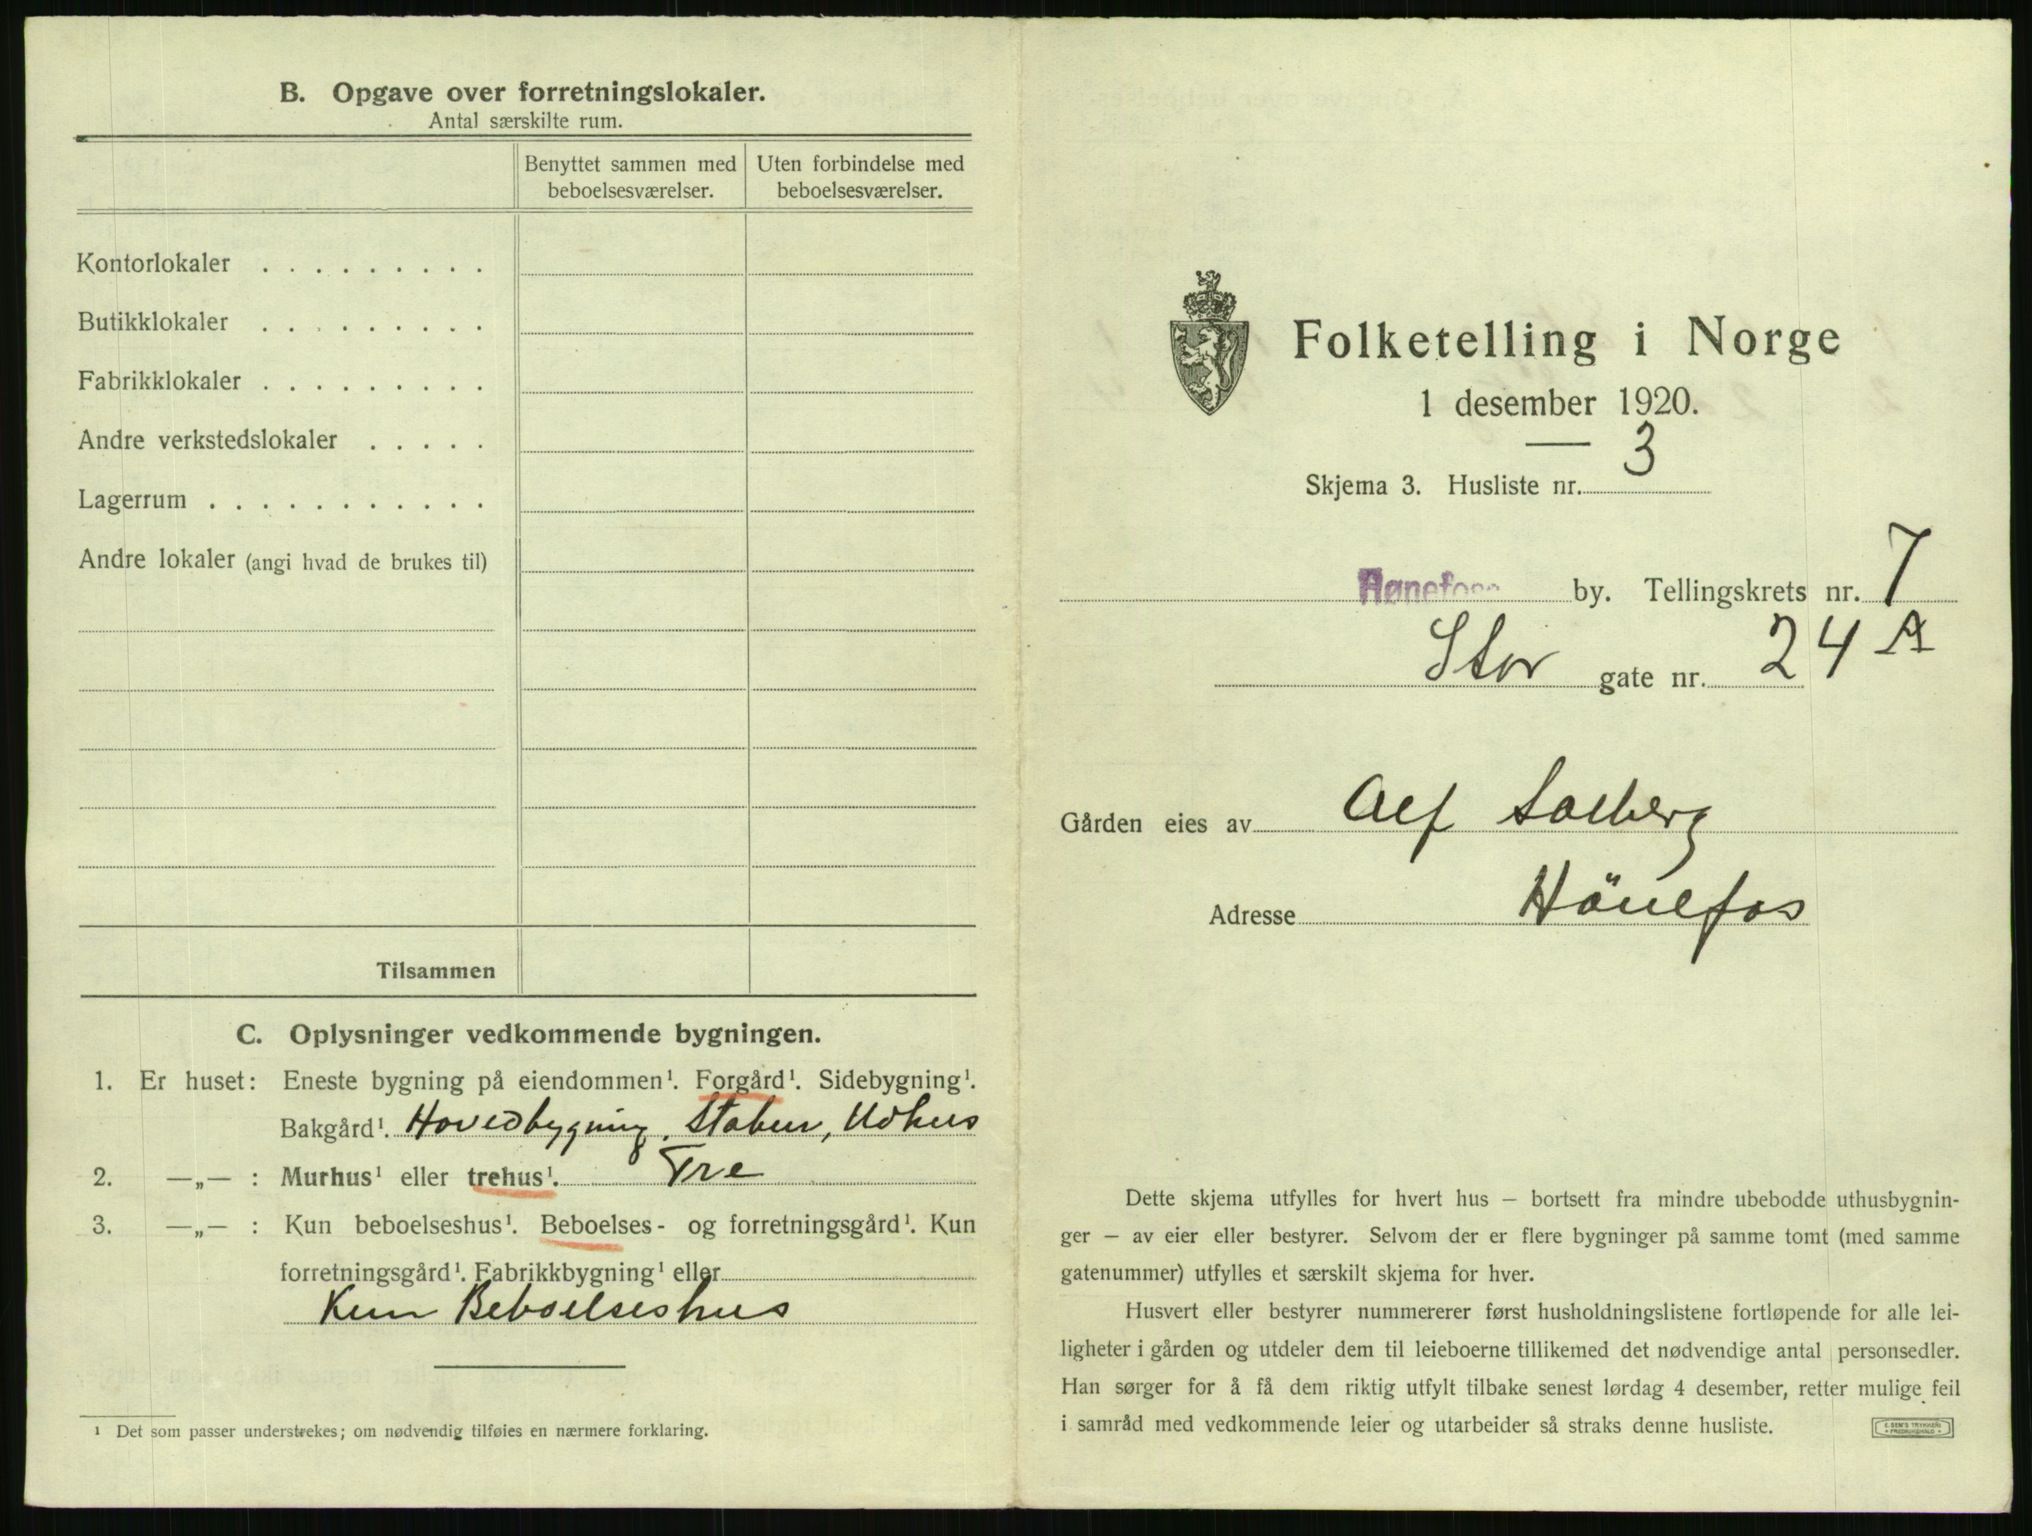 B. Opgave over forretningslokaler.
Antal særskilte rum.
Benyttet sammen med beboelsesværelser.
Uten forbindelse med beboelsesværelser.
Kontorlokaler . . . . . . . . .
Butikklokaler . . . . . . . . .
Fabrikklokaler . . . . . . . . .
Andre verkstedslokaler . . . . .
Lagerrum . . . . . . . . . . .
Andre lokaler (angi hvad de brukes til)
Tilsammen
C. Oplysninger vedkommende bygningen.
1. Er huset: Eneste bygning på eiendommen¹. Forgård¹. Sidebygning¹.
Bakgård¹. Hovedbygning, Stabur, Udhus
2. —„— : Murhus¹ eller trehus¹. Tre
3. —„— : Kun beboelseshus¹. Beboelses- og forretningsgård¹. Kun
forretningsgård¹. Fabrikkbygning¹ eller
Kun Beboelseshus
¹ Det som passer understrekes; om nødvendig tilføies en nærmere forklaring.
Folketelling i Norge
1 desember 1920.
Skjema 3. Husliste nr. 3
Hønefoss by. Tellingskrets nr. 7
Stor gate nr. 24 A
Gården eies av Alf Solberg
Adresse Hönefos
Dette skjema utfylles for hvert hus — bortsett fra mindre ubebodde uthusbygnin-
ger — av eier eller bestyrer. Selvom der er flere bygninger på samme tomt (med samme
gatenummer) utfylles et særskilt skjema for hver.
Husvert eller bestyrer nummererer først husholdningslistene fortløpende for alle lei-
ligheter i gården og utdeler dem til leieboerne tillikemed det nødvendige antal personsedler.
Han sørger for å få dem riktig utfylt tilbake senest lørdag 4 desember, retter mulige feil
i samråd med vedkommende leier og utarbeider så straks denne husliste.
E. SEM'S TRYKKERI
FREDRIKSHALD